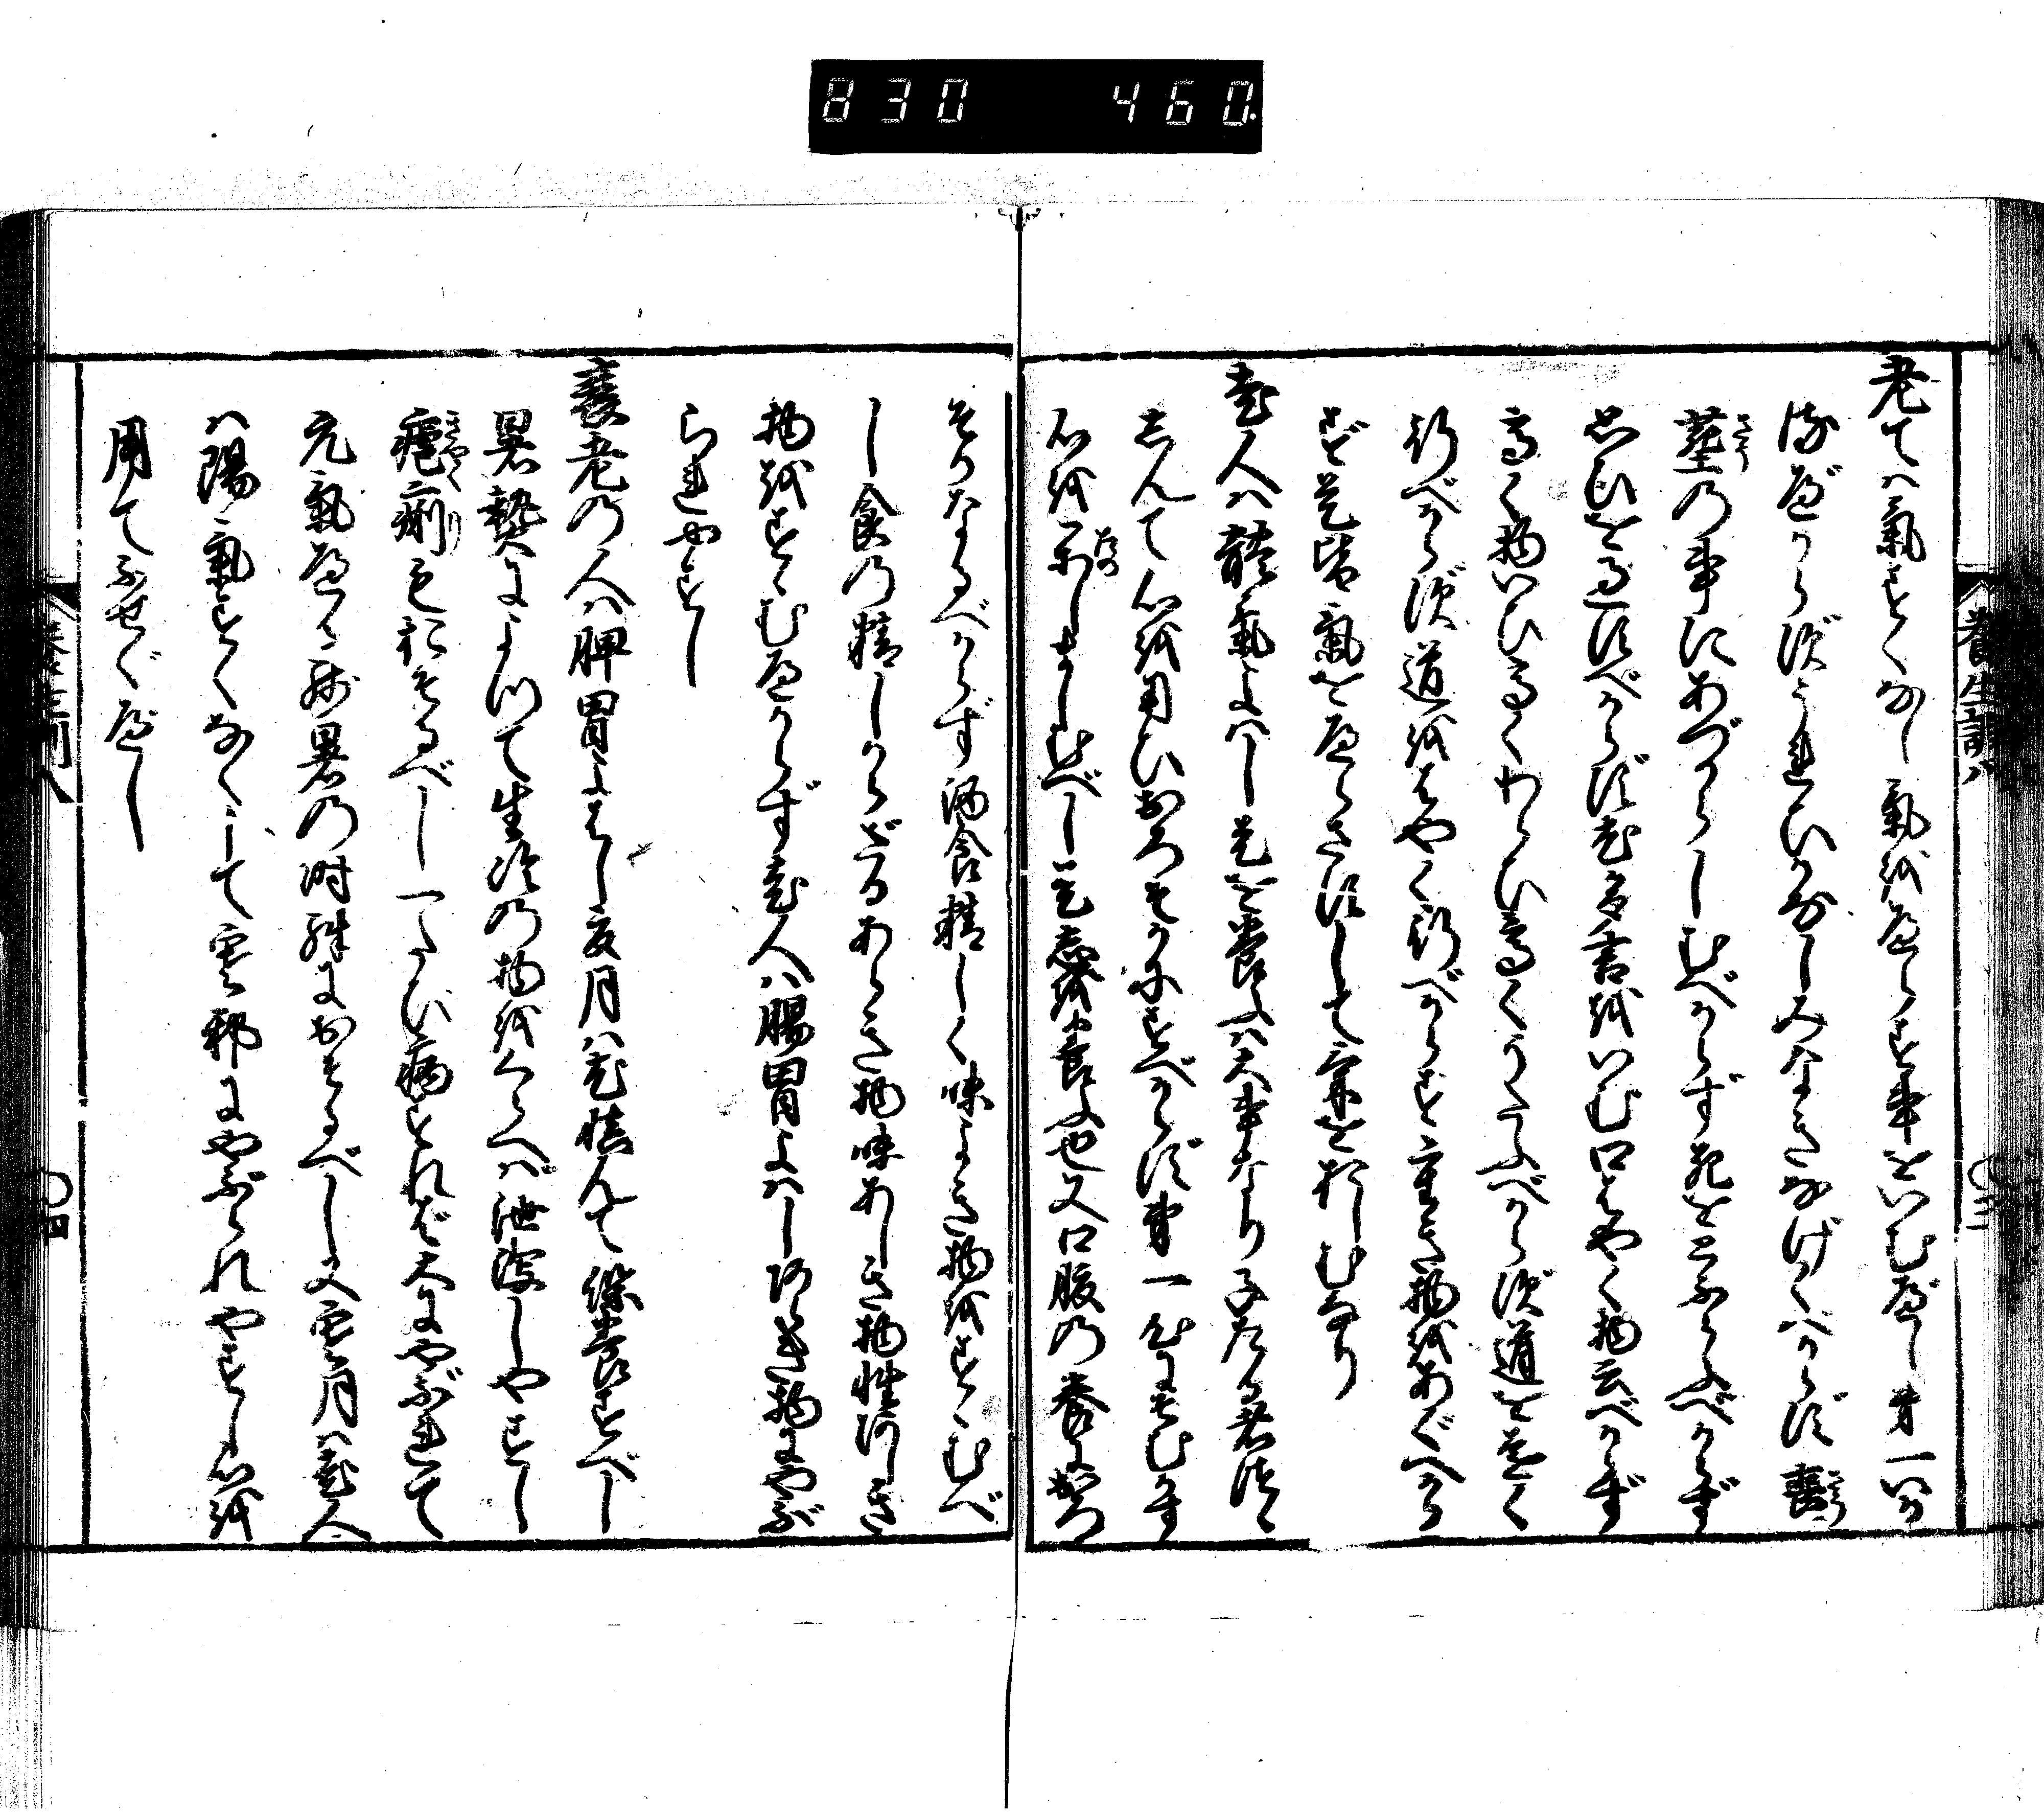 830 460.
養生訓八
〇三
老ては氣すくなし氣をへらす事をいむべし第一いか
るべからずうれひかなしみなきなげくべからず喪
葬の事にあづからしむべからず死をとぶらふべからず
思ひを過すべからず尤多言をいむ口はやく物云べからず
高く物いひ高くわらひ高くうたふべからず道を遠く
行べからず道をはやく行べからず重き物をあぐべから
ず是皆氣をへらさずして氣を惜しむなり
老人は體氣よはし是を養ふは大事なり子たる者つゝ
しんて心を用ひおろそかにすべからず第一心にそむかず
心を楽しましむべし是志を養ふ也又口腹の養におろ
そかなるべからず酒食精しく味よき物をすゝむべ
し食の精しからざるあらき物味あしき物性あしき
物をすゝむべからず老人は腸胃よはしあらき物にやぶ
られやすし
衰老の人は脾胃よはし夏月は尤慎んて保養すべし
暑熱によつて生冷の物をくらへば泄瀉しやすし
瘧痢も尤おそるべし一たび病すれば大にやぶれて
元氣へる殊暑の時殊におそるべし又寒月は老人
は陽氣すくなくして寒邪にやぶられやすし心を
用てふせぐべし
養生訓八
〇四